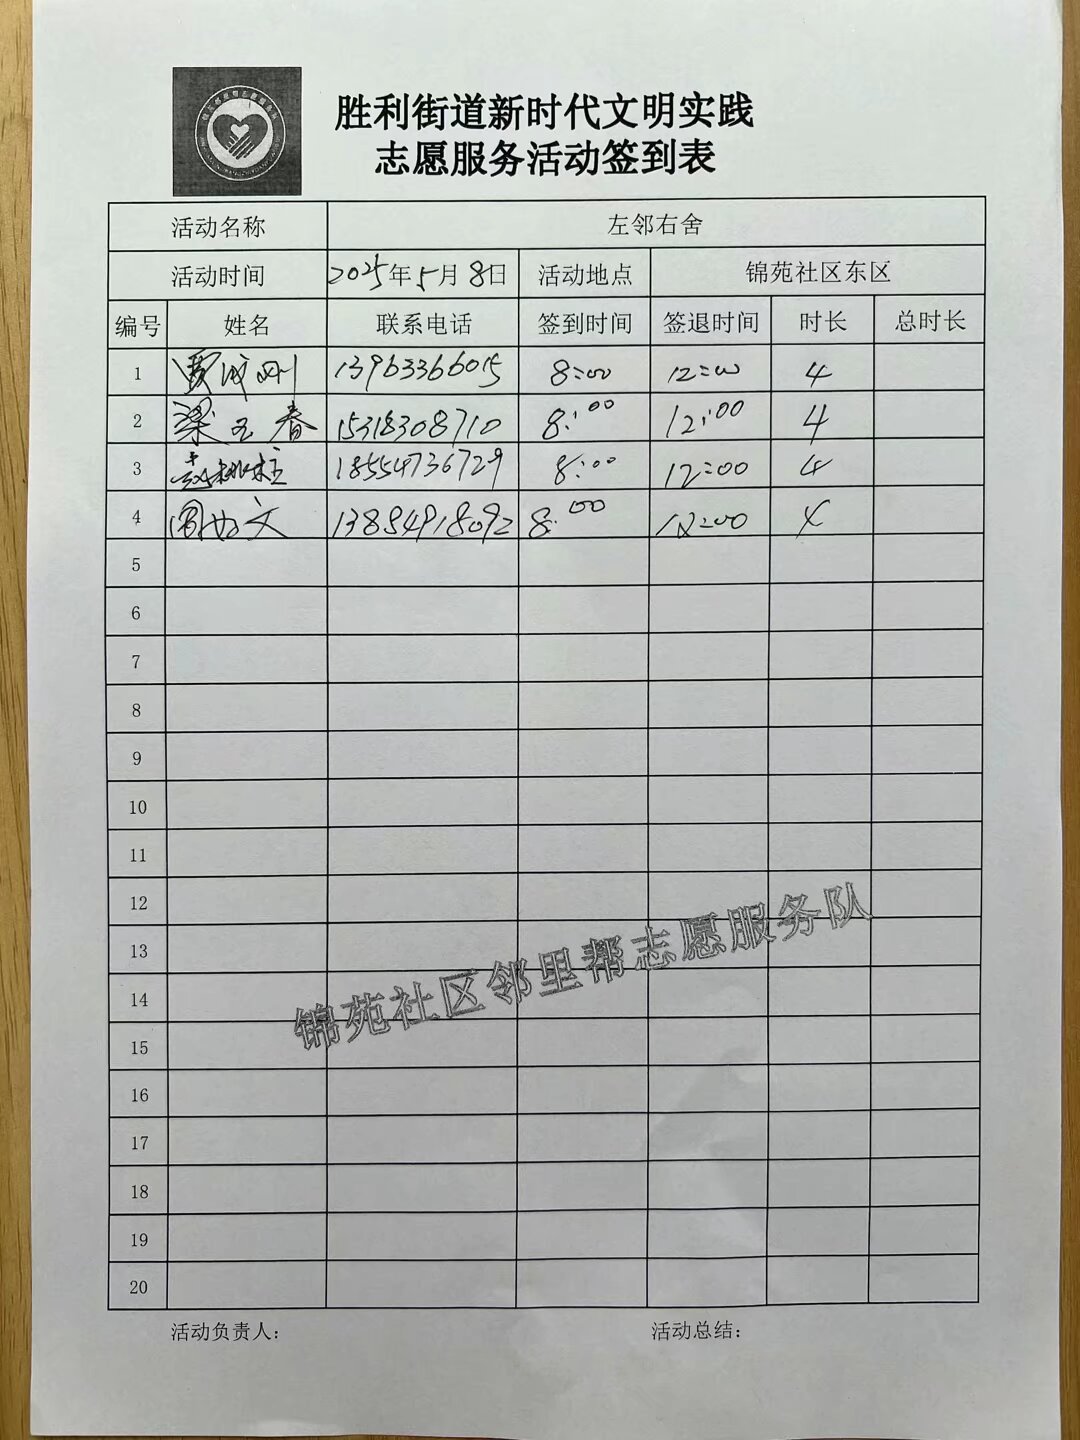 胜利街道新时代文明实践
志愿服务活动签到表
活动名称 左邻右舍
活动时间 2025年5月8日 活动地点 锦苑社区东区
编号 姓名 联系电话 签到时间 签退时间 时长 总时长
1 13963366015 8:00 12:00 4
2 梁玉春 15318308710 8:00 12:00 4
3 18554736729 8:00 12:00 4
4 13884918092 8:00 12:00 4
5
6
7
8
9
10
11
12
13
14
15
16
17
18
19
20
锦苑社区邻里帮志愿服务队
活动负责人: 活动总结: